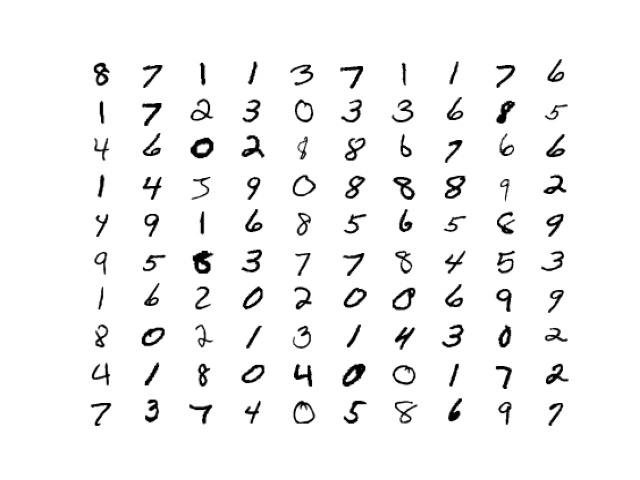 8 7 1 1 3 7 1 1 7 6
1 7 2 3 0 3 3 6 8 5
4 6 0 2 8 8 6 7 6 6
1 4 5 9 0 8 8 8 9 2
4 9 1 6 8 5 6 5 8 9
9 5 8 3 7 7 8 4 5 3
1 6 2 0 2 0 0 6 9 9
8 0 2 1 3 1 4 3 0 2
4 1 8 0 4 0 0 1 7 2
7 3 7 4 0 5 8 6 9 7